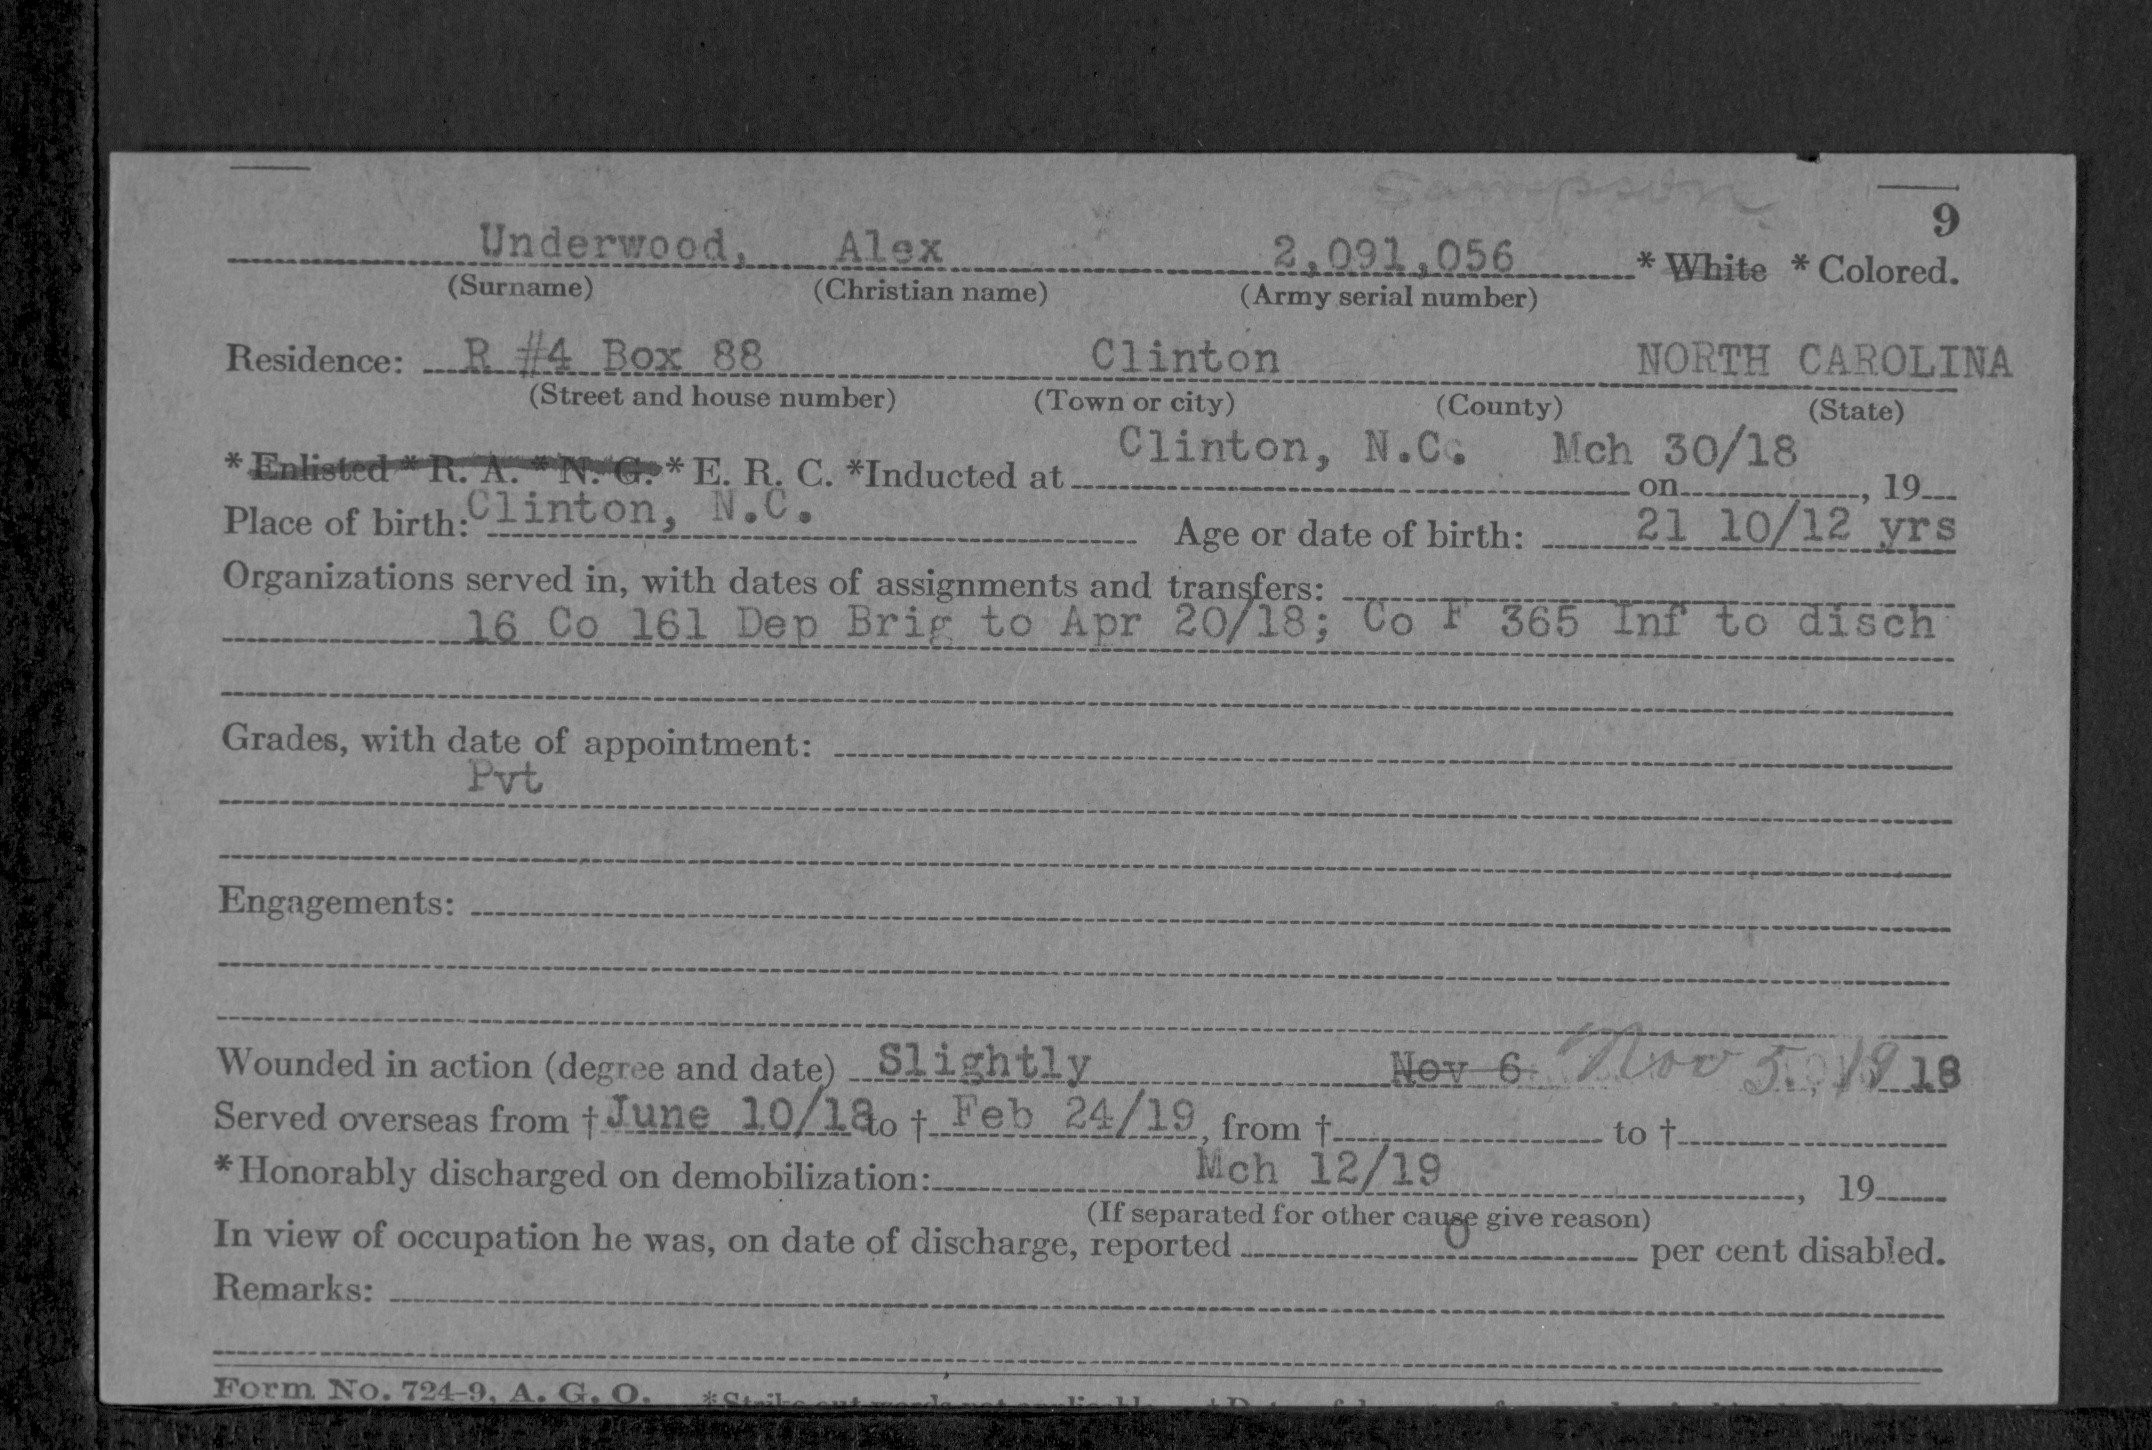 Sampson
9
Underwood, Alex 2,091,056 * White * Colored.
(Surname) (Christian name) (Army serial number)
Residence: R #4 Box 88 Clinton NORTH CAROLINA
(Street and house number) (Town or city) (County) (State)
Clinton, N.C. Mch 30/18
* Enlisted * R. A. * N. G. * E. R. C. *Inducted at on , 19
Place of birth: Clinton, N.C. Age or date of birth: 21 10/12 yrs
Organizations served in, with dates of assignments and transfers:
16 Co 161 Dep Brig to Apr 20/18; Co F 365 Inf to disch
Grades, with date of appointment:
Pvt
Engagements:
Wounded in action (degree and date) Slightly Nov 6 Nov 5, 19 18
Served overseas from † June 10/18 to † Feb 24/19, from † to †
*Honorably discharged on demobilization: Mch 12/19 , 19
(If separated for other cause give reason)
In view of occupation he was, on date of discharge, reported 0 per cent disabled.
Remarks:
Form No. 724-9, A. G. O. *Strike out words not applicable.